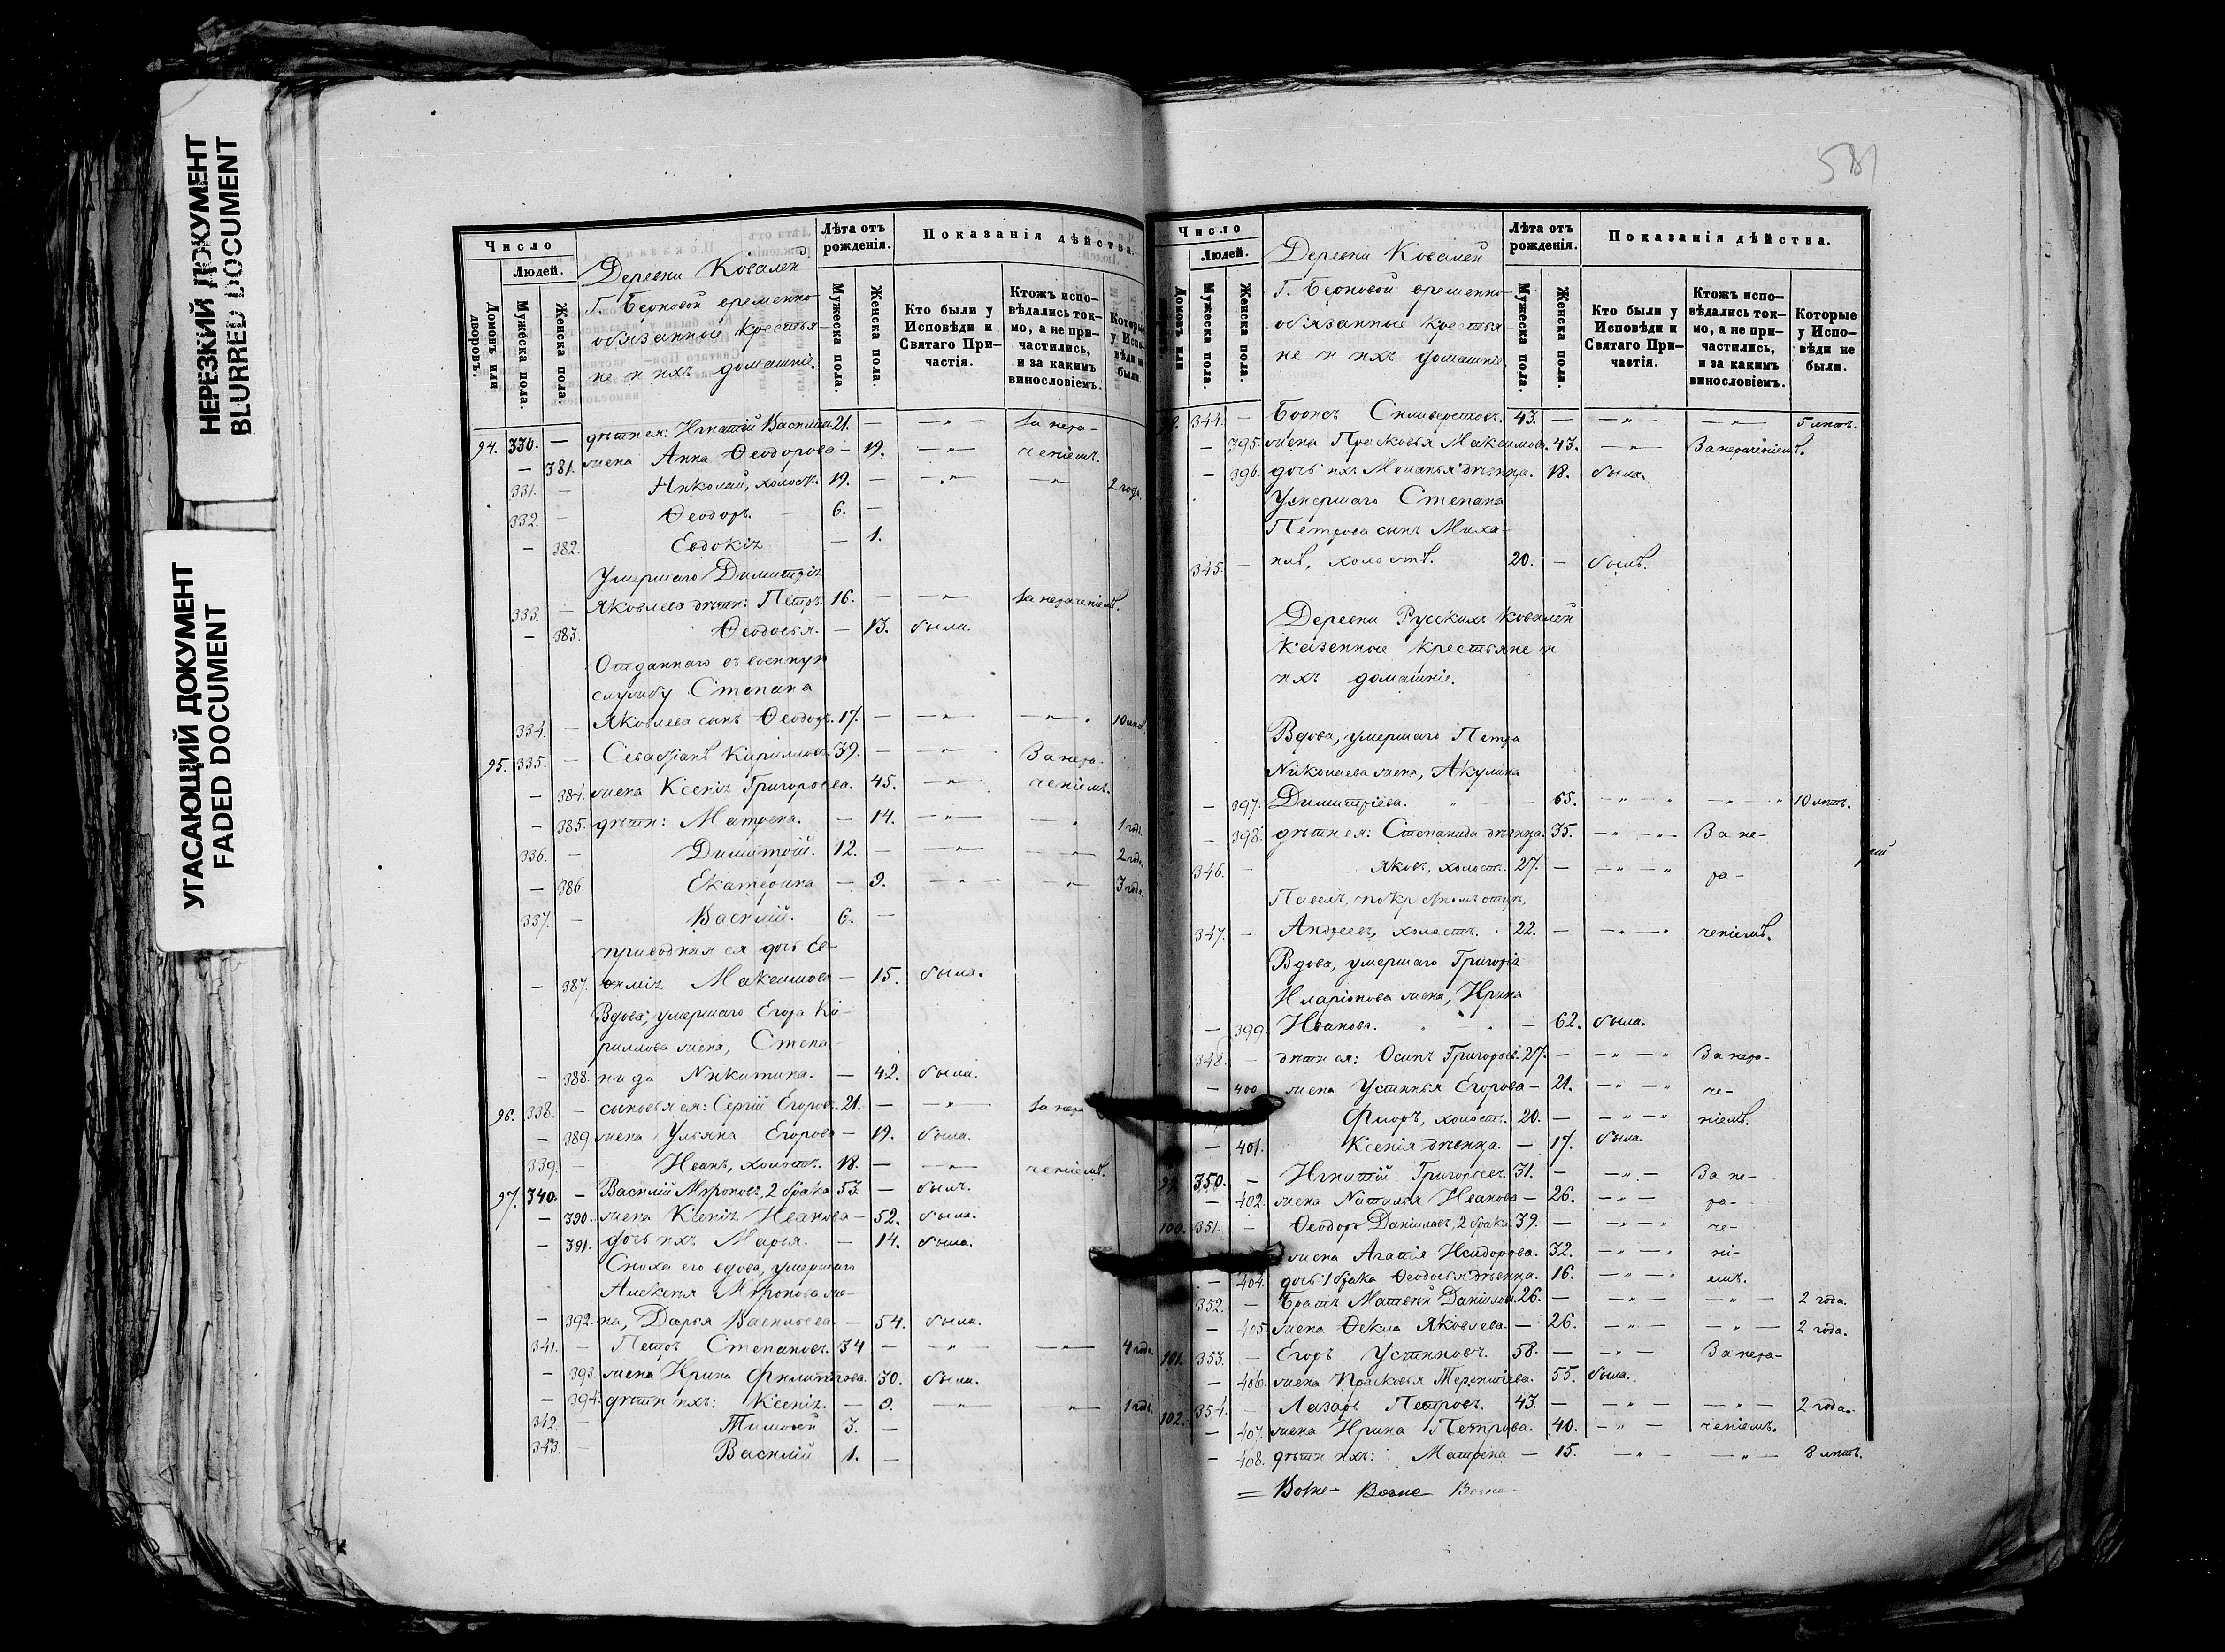 НЕРЕЗКИЙ ДОКУМЕНТ
BLURRED DOCUMENT
УГАСАЮЩИЙ ДОКУМЕНТ
FADED DOCUMENT
Число
Людей.
Домовъ или дворовъ.
Мужеска пола.
Женска пола.
Деревни Ковалей
Г. Берковой временно-
обязанные крестья-
не и ихъ домашніе.
Лѣта отъ рожденія.
Мужеска пола.
Женска пола.
Показанія дѣйства.
Кто были у Исповѣди и Святаго При-частія.
Ктожъ испо-вѣдались ток-мо, а не при-частились, и за какимъ винословіемъ.
Которые у Испо-вѣди не были.
94. 330. — дѣти ея: Игнатій Васильев. 21. — —„— За нера-
— 381. жена Анна Ѳеодорова — 19. —„— ченіемъ.
331. — Николай, холостъ. 19. — —„— —„— 2 года.
332. — Ѳеодоръ. 6. —
— 382. Евдокія — 1.
Умершаго Димитрія
333. — Яковлева дѣти: Петръ. 16. — —„— За нераченіемъ.
— 383. Ѳеодосья. — 13. была.
Отданнаго въ военную
службу Степана
334. — Яковлева сынъ Ѳеодоръ. 17. — —„— —„— 10 лѣтъ.
95. 335. — Севастіанъ Кириловъ. 39. — —„— За нера-
— 384. жена Ксенія Григорьева. 45. —„— ченіемъ.
— 385. дѣти: Матрена. — 14. —„— —„— 1 годъ.
336. — Димитрій. 12. — —„— —„— 2 года.
— 386. Екатерина — 9. —„— —„— 3 года.
337. — Василій. 6. —
приводная ея дочь Ев-
— 387. фимія Максимова — 15. была.
Вдова, умершаго Егора Ки-
риллова жена, Степа-
— 388. нида Никитина. — 42. была.
96. 338. — сыновья ея: Сергій Егоровъ. 21. — —„— За нера
— 389. жена Ульяна Егорова — 19. была.
339. — Иванъ, холостъ. 18. — —„— ченіемъ.
97. 340. — Василій Мироновъ, 2 брака 53. — былъ.
— 390. жена Ксенія Иванова — 52. была.
— 391. дочь ихъ Марья. — 14. была.
Сноха его вдова, умершаго
Алексѣя Миронова же-
— 392. на, Дарья Васильева — 54. была.
341. — Петръ Степановъ. 34 — —„— —„— 4 года.
— 393. жена Ирина Филиппова. 30. была.
— 394. дѣти ихъ: Ксенія. — 9. —„— —„— 1 годъ.
342. — Тимофей 3. —
343. — Василій 1. —
581
Число
Людей.
Домовъ или
Мужеска пола.
Женска пола.
Деревни Ковалей
Г. Берковой временно-
обязанные крестья
не и ихъ домашніе.
Лѣта отъ рожденія.
Мужеска пола.
Женска пола.
Показанія дѣйства.
Кто были у Исповѣди и Святаго При-частія.
Ктожъ испо-вѣдались ток-мо, а не при-частились, и за какимъ винословіемъ.
Которые у Испо-вѣди не были.
344. — Борисъ Силиверстовъ. 43. — —„— —„— 5 лѣтъ.
— 395. жена Прасковья Максимова. 43. —„— За нераченіемъ.
— 396. дочь ихъ Меланья дѣвица. 18. была.
Умершаго Степана
Петрова сынъ Миха-
345. — илъ, холостъ. 20. — былъ.
Деревни Русскихъ Ковалей
казенные крестьяне и
ихъ домашніе.
Вдова, умершаго Петра
Николаева жена, Акулина
— 397. Димитріева. — 65. —„— —„— 10 лѣтъ.
— 398. дѣти ея: Степанида дѣвица. 35. —„— За не-
346. — Яковъ, холостъ. 27. — —„— ра-
Павелъ, по крестномъ отцѣ,
347. — Андреевъ, холостъ. 22. — —„— ченіемъ.
Вдова, умершаго Григорія
Иларіонова жена, Ирина
— 399. Иванова. — 62. была.
348. — дѣти ея: Осипъ Григорьев. 27. — —„— За нера-
— 400 жена Устинья Егорова — 21. —„— че-
Флоръ, холостъ. 20. — —„— ніемъ.
— 401. Ксенія дѣвица. — 17. была.
99. 350. — Игнатій Григорьевъ. 31. — —„— За не-
— 402. жена Наталья Иванова — 26. —„— ра-
100. 351. — Ѳеодоръ Даніиловъ, 2 брака. 39. — —„— че-
жена Агапія Исидорова. 32. —„— ні-
— 404. дочь 1 брака Ѳеодосья дѣвица. 16. —„— емъ.
352. — Братъ Матвѣй Даніиловъ. 26. — —„— —„— 2 года.
— 405. жена Ѳекла Яковлева. — 26. —„— —„— 2 года.
101. 353. — Егоръ Устиновъ. 58. — —„— За нера-
— 406. жена Прасковья Терентіева. 55. была.
102. 354. — Лазарь Петровъ. 43. — —„— —„— 2 года.
— 407. жена Ирина Петрова. 40. —„— ченіемъ.
— 408. дѣти ихъ: Матрена — 15. —„— —„— 8 лѣтъ.